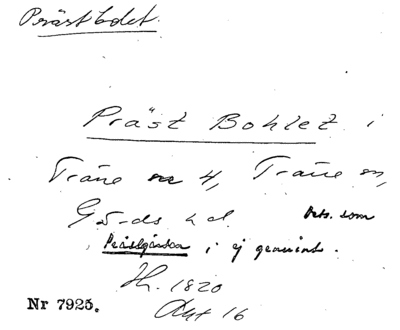 Prästbolet.
Präst Bohlet i
Träne 4, Träne sn,
G-ds hd.
Prästgården i ej
H. 1820
Akt 16
Nr 7925.